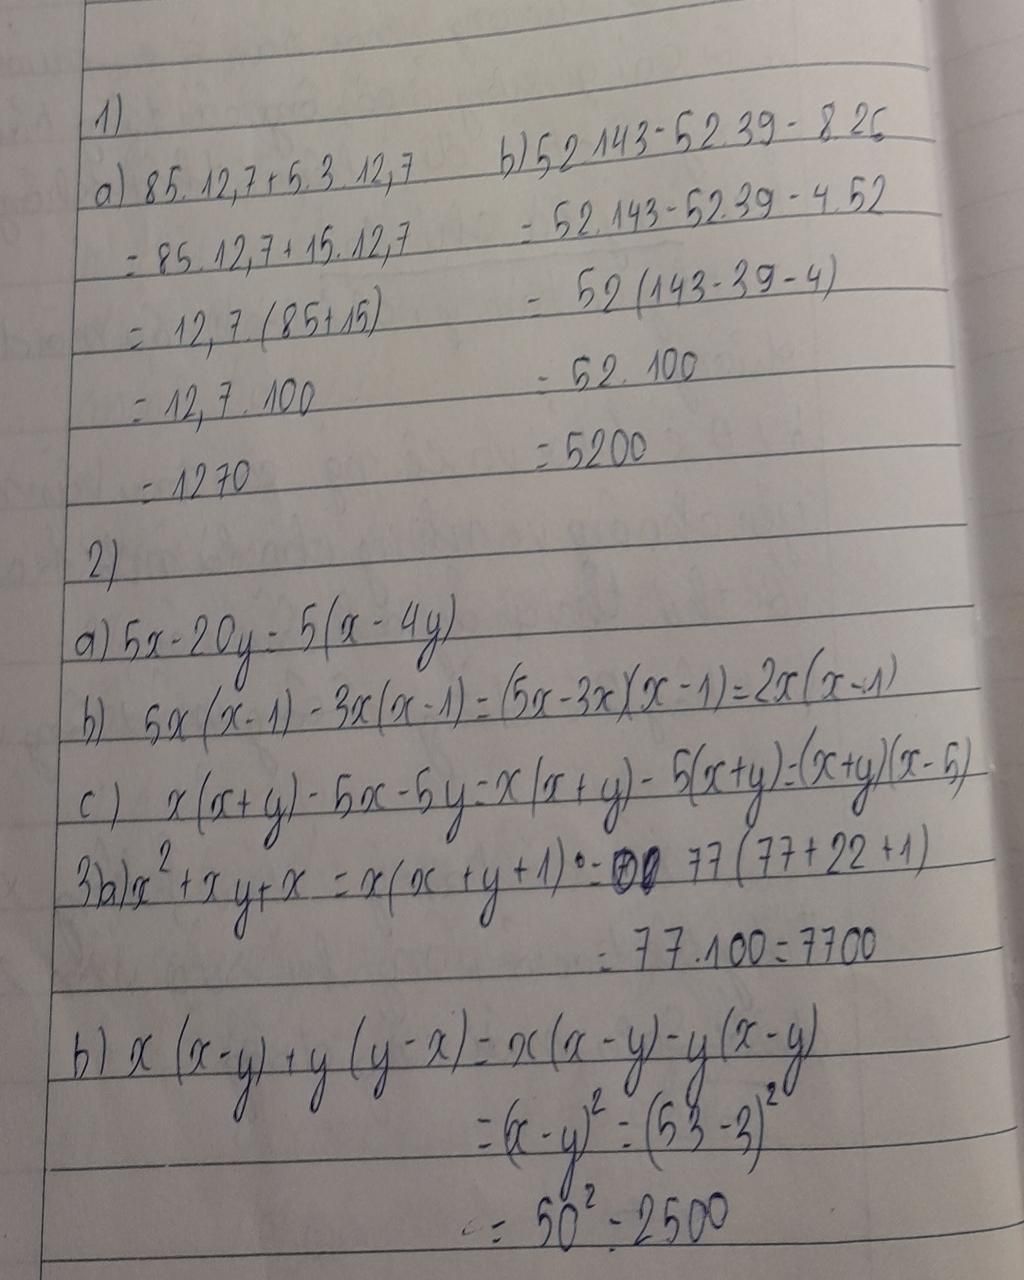 1)
a) 85.12,7+5.3.12,7
= 85.12,7+15.12,7
= 12,7.(85+15)
= 12,7.100
= 1270
b) 52.143-52.39-8.26
= 52.143-52.39-4.52
= 52(143-39-4)
= 52.100
= 5200
2)
a) 5x-20y=5(x-4y)
b) 5x(x-1)-3x(x-1)=(5x-3x)(x-1)=2x(x-1)
c) x(x+y)-5x-5y=x(x+y)-5(x+y)=(x+y)(x-5)
3a) x²+xy+x=x(x+y+1)=77(77+22+1)
=77.100=7700
b) x(x-y)+y(y-x)=x(x-y)-y(x-y)
=(x-y)²=(53-3)²
=50²=2500